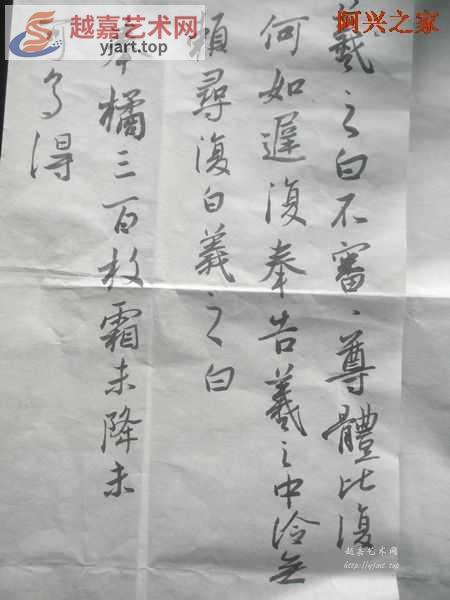 越嘉艺术网
yjart.top
阿兴之家
羲之白不審、尊體比復
何如遲復奉告羲之中冷無
賴尋復白羲之白
奉橘三百枚霜未降未
可多得
越嘉艺术网
http://yjart.top